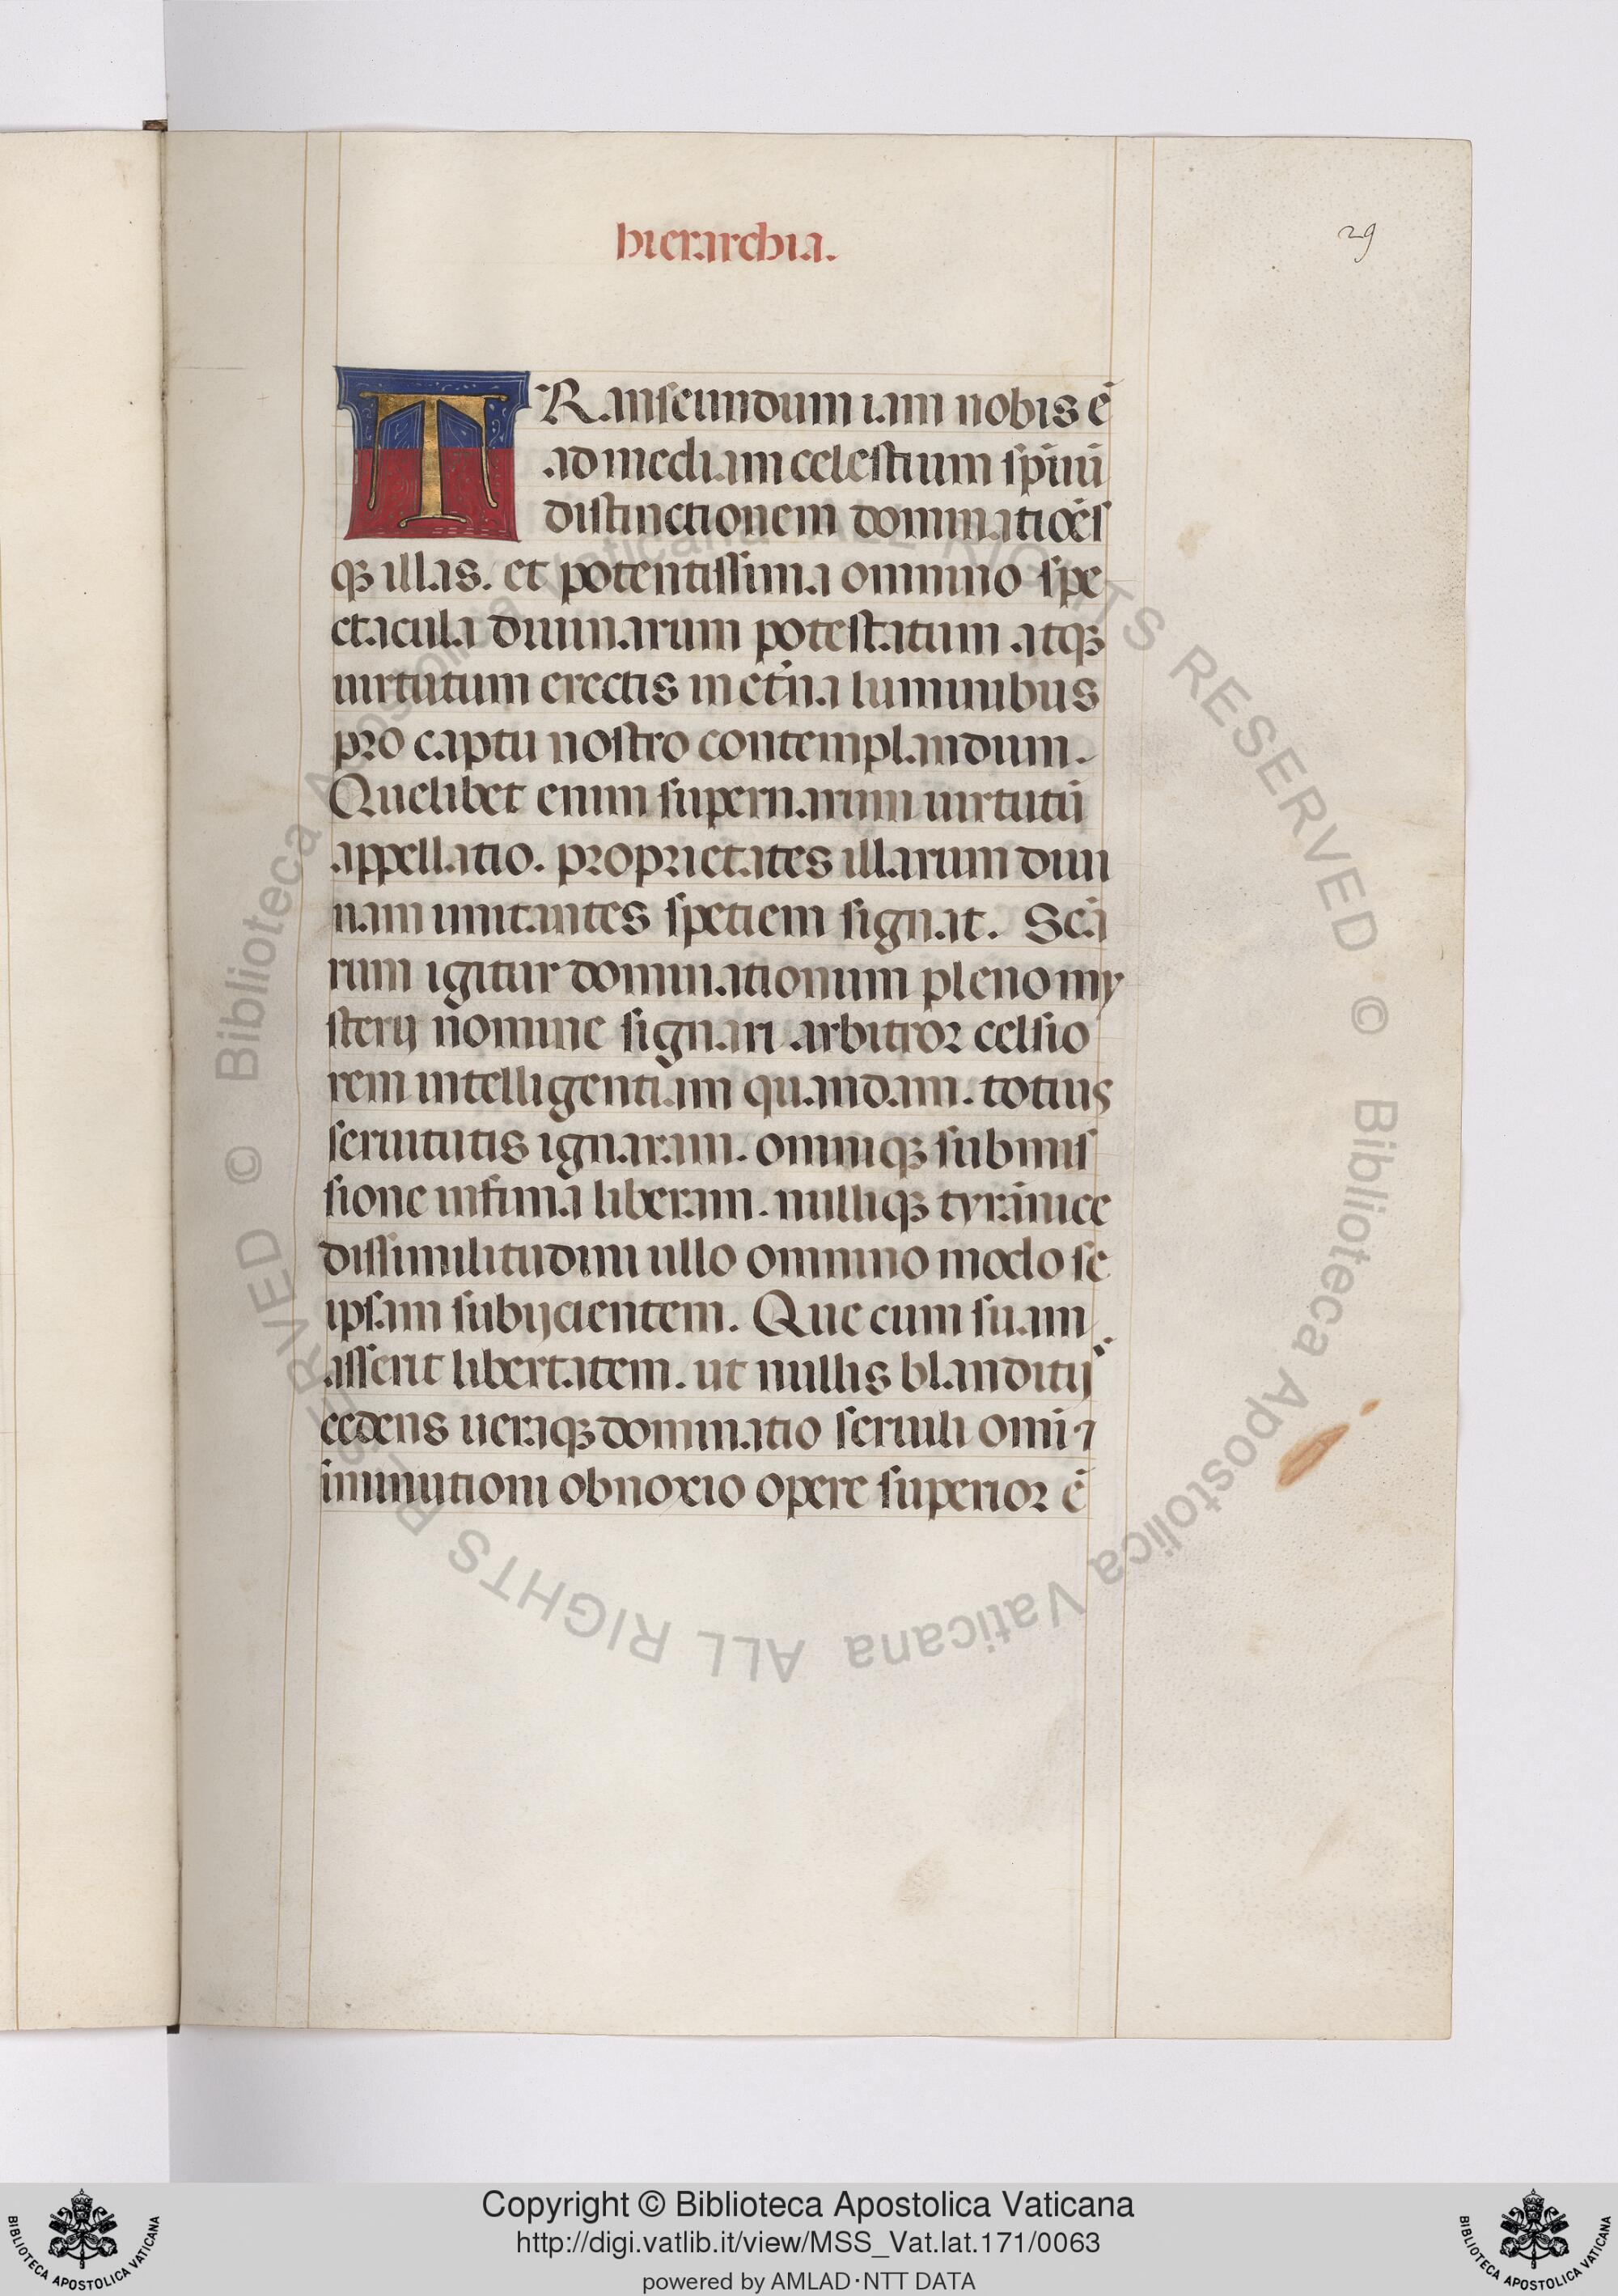 hierarchia.
29
TRanseundum iam nobis ē
ad mediam celestium spūū
distinctionem dominatiōēs
qꝫ illas. et potentissima omnino spe
ctacula diuinarum potestatum atqꝫ
uirtutum erectis in etńa luminibus
pro captu nostro contemplandum.
Quelibet enim supernarum uirtutū
appellatio. proprietates illarum diui
nam imitantes spetiem signat. Scā
rum igitur dominationum pleno my
sterij nomine signari arbitror celsio
rem intelligentiam quandam. totius
seruitutis ignaram. omniqꝫ submis
sione infimā liberam. nulliqꝫ tyrānice
dissimilitudini ullo omnino modo se
ipsam subijcientem. Que cum suam
asserit libertatem. ut nullis blanditijs
cedens ueraqꝫ dominatio seruili omī ⁊
īminutioni obnoxio opere superior ē
© Biblioteca Apostolica Vaticana ALL RIGHTS RESERVED
© Biblioteca Apostolica Vaticana ALL RIGHTS RESERVED
BIBLIOTECA APOSTOLICA VATICANA
Copyright © Biblioteca Apostolica Vaticana
http://digi.vatlib.it/view/MSS_Vat.lat.171/0063
powered by AMLAD·NTT DATA
BIBLIOTECA APOSTOLICA VATICANA